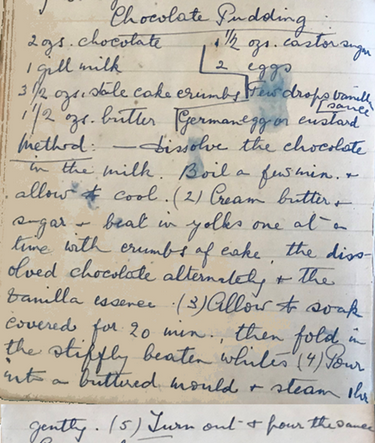 Chocolate Pudding.
2 ozs. chocolate 1 1/2 ozs. castor sugar
1 gill milk 2 eggs
3 1/2 ozs. stale cake crumbs few drops vanilla
1 1/2 ozs. butter German egg or custard sauce
Method: — Dissolve the chocolate
in the milk. Boil a few min. +
allow to cool. (2) Cream butter +
sugar + beat in yolks one at a
time with crumbs of cake, the diss-
olved chocolate alternately + the
vanilla essence. (3) Allow to soak
covered for 20 min., then fold in
the stiffly beaten whites (4) Pour
into a buttered mould + steam 1 hr
gently. (5) Turn out + pour the sauce